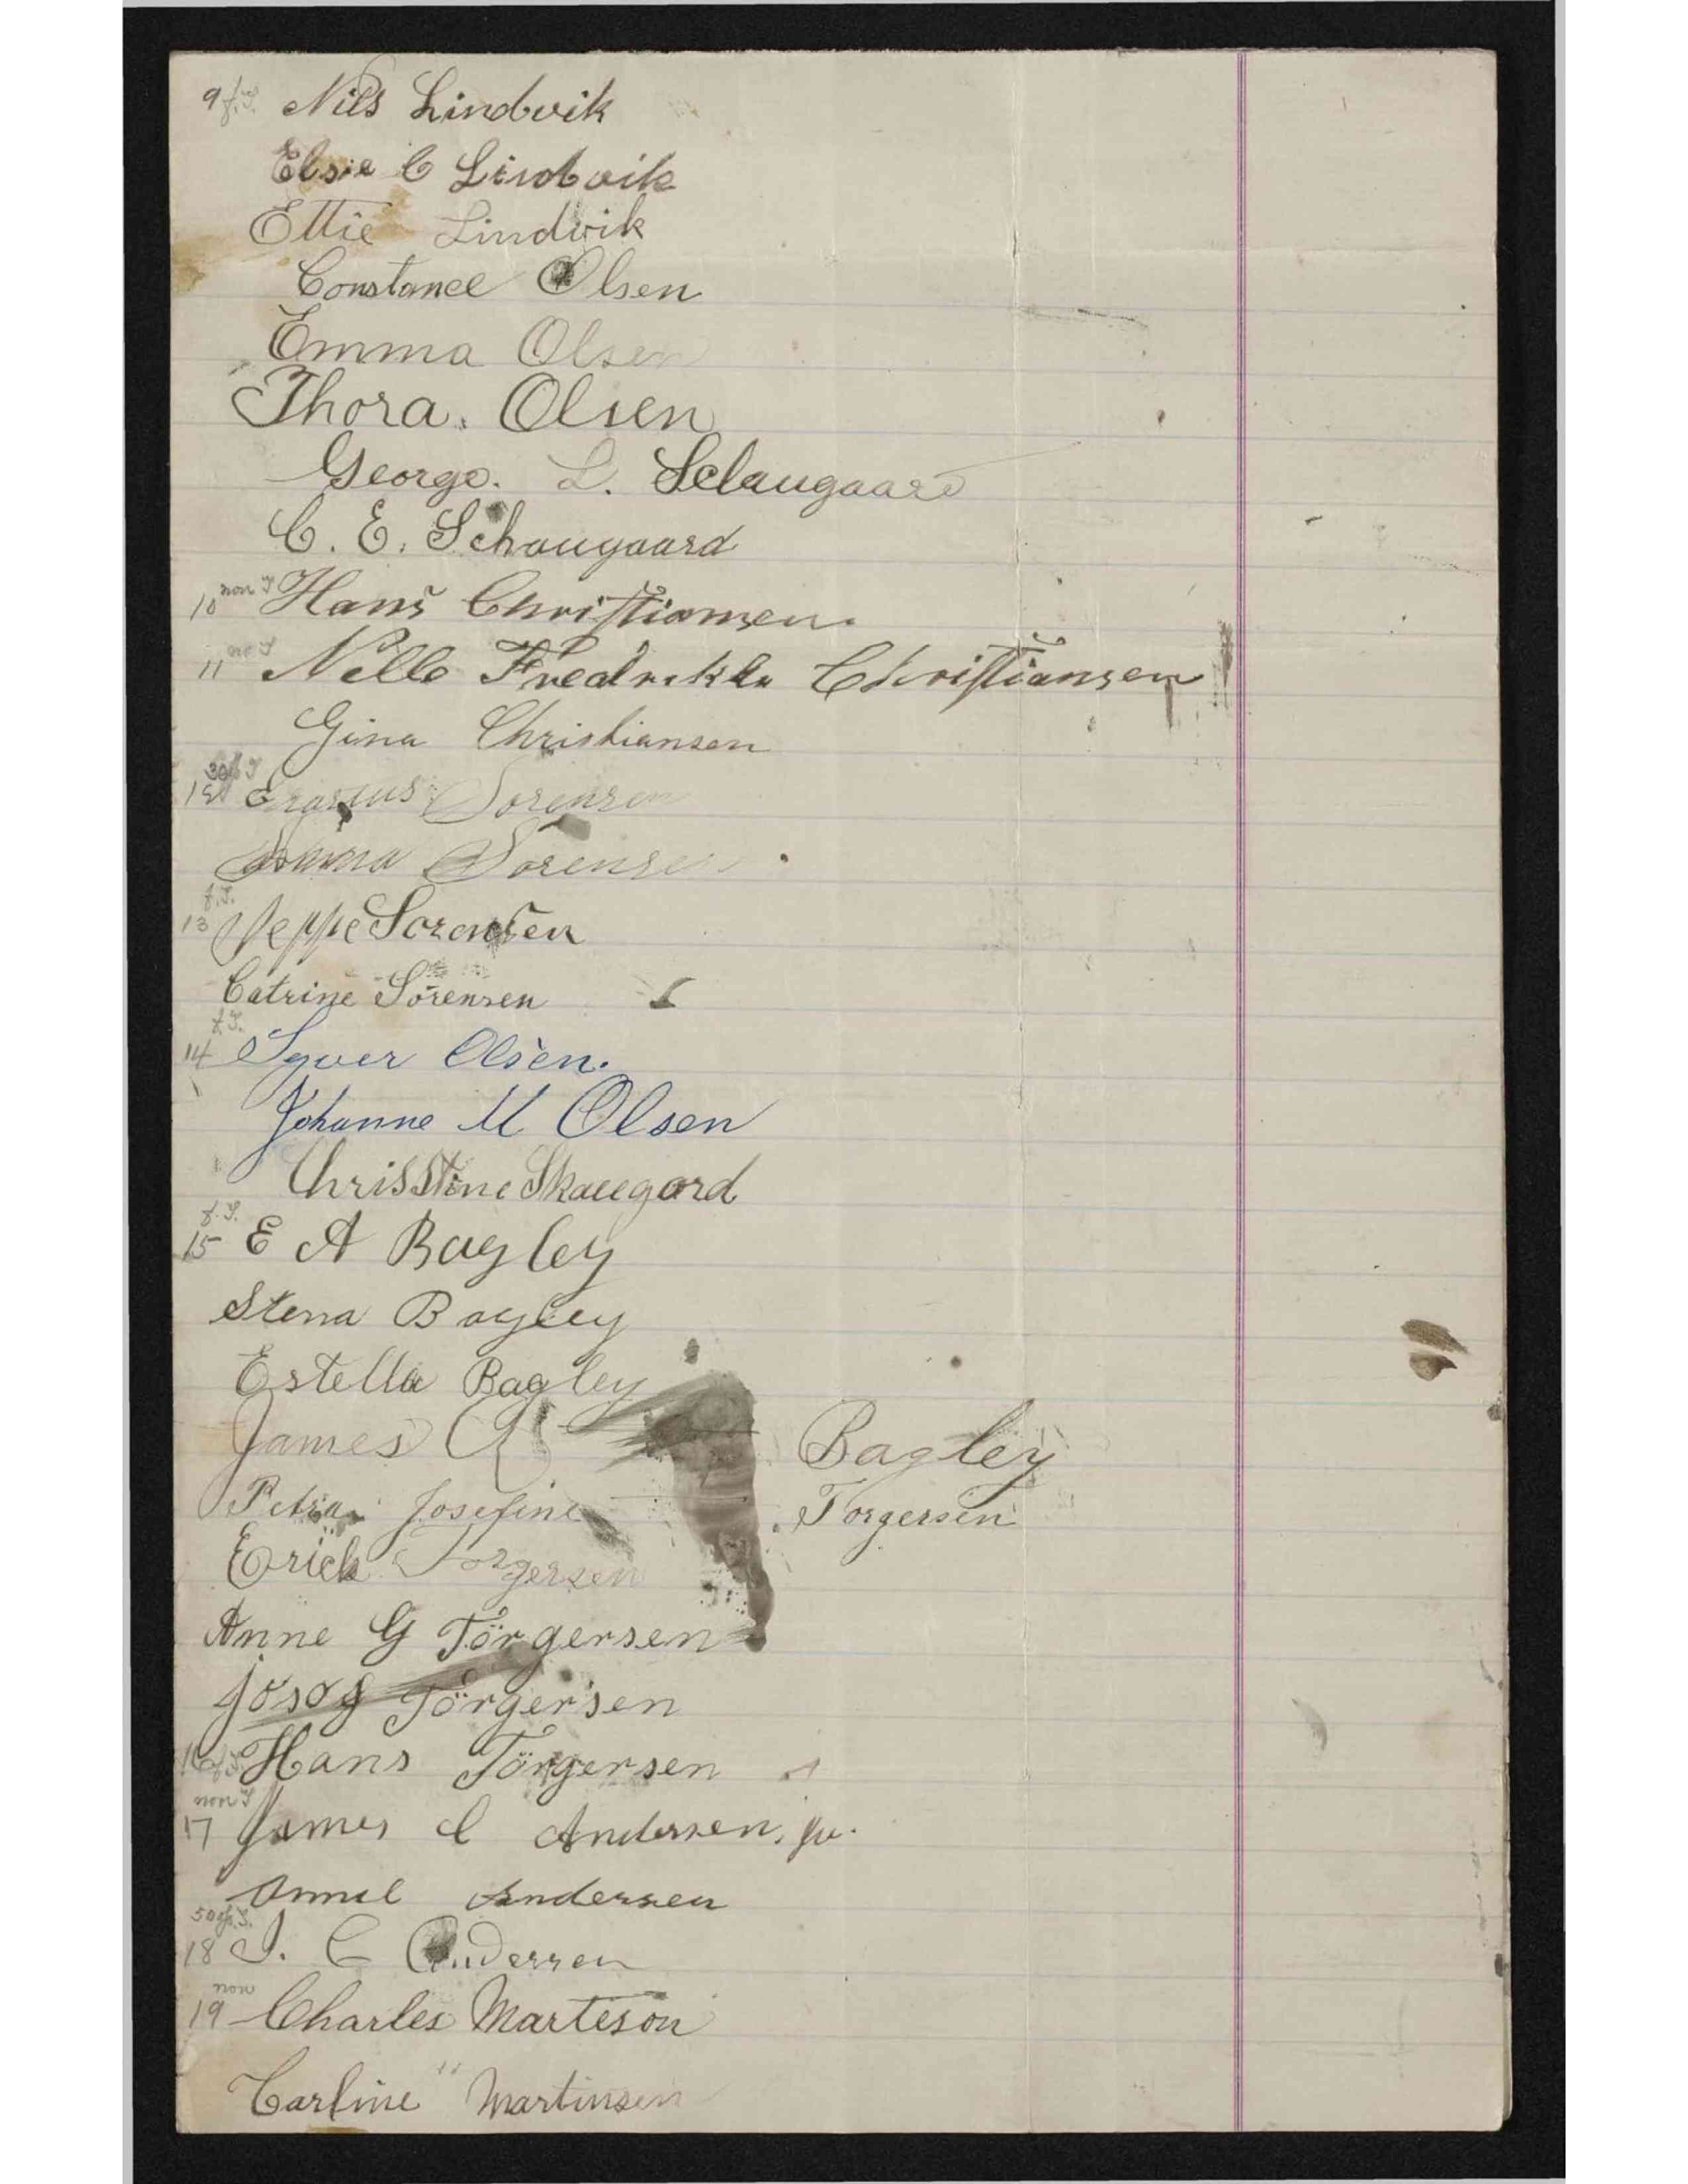 9 f.S. Nils Lindvik
Elsie C Lindvik
Ettie Lindvik
Constance Olsen
Emma Olsen
Thora. Olsen
George. L. Schaugaard
C. E. Schougaard
10 non S Hans Christiansen.
11 no S Nelle Christiansen
Gina Christiansen
Erasmus Sorensen
Sorensen
f.S.
13 Jeppe Sorensen
Catrine Sörensen
f.S.
14 Syver Olsen.
Johanne M Olsen
Chrisstine Skaugard
f.S.
15 E A Bagley
Stena Bagley
Estella Bagley
James Bagley
Petra Josefine Torgersen
Erick Torgersen
Anne G Törgersen
Josog Törgersen
16 f.S Hans Törgersen
non S
17 James C Andersen, Jr.
Annie Andersen
50 f.S.
18 J. C Andersen
non
19 Charles Marteson
Carline Martinsen